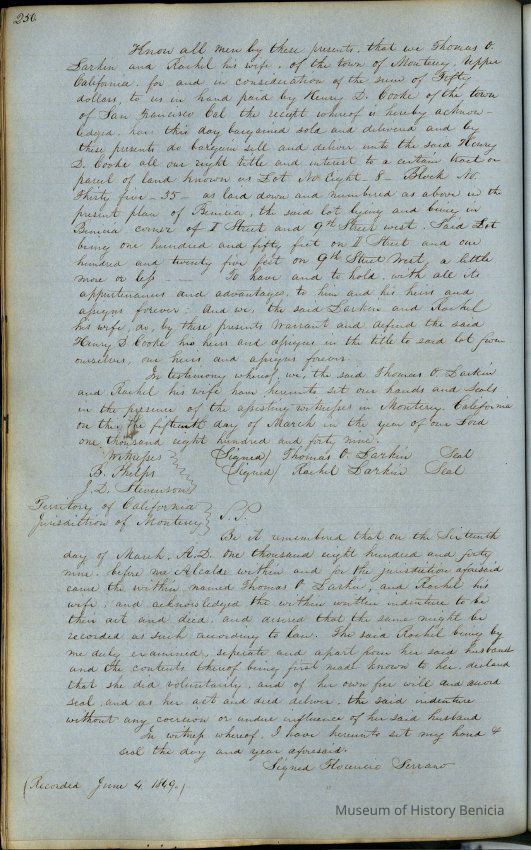 250
Know all men by these presents, that we Thomas O.
Larkin and Rachel his wife, of the town of Monterey, Upper
California, for and in consideration of the sum of Fifty
dollars, to us in hand paid by Henry D. Cooke of the town
of San Francisco Cal the receipt whereof is hereby acknow-
ledged, have this day bargained sold and delivered and by
these presents do bargain sell and deliver unto the said Henry
D. Cooke all our right title and interest to a certain tract or
parcel of land known as Lot No Eight - 8 - Block No.
Thirty five - 35 - as laid down and numbered as above in the
present plan of Benicia, the said lot lying and being in
Benicia corner of I Street and 9th Street west. Said Lot
being one hundred and fifty feet on I Street and one
hundred and twenty five feet on 9th Street West, a little
more or less - To have and to hold, with all its
appurtenances and advantages, to him and his heirs and
assigns forever; And we, the said Larkin and Rachel
his wife, do, by these presents Warrant and defend the said
Henry D. Cooke his heirs and assigns in the title to said lot from
ourselves, our heirs and assigns forever.
In testimony whereof, we, the said Thomas O. Larkin
and Rachel his wife have hereunto set our hands and seals
in the presence of the attesting witnesses in Monterey, California
on this the fifteenth day of March in the year of our Lord
one thousand eight hundred and forty nine.
Witnesses (Signed) Thomas O Larkin Seal
B. Phelps (Signed) Rachel Larkin Seal
J. D. Stevenson
Territory of California
Jurisdiction of Monterey S.S.
Be it remembered that on the Sixteenth
day of March, A.D. one thousand eight hundred and forty
nine, before me Alcalde within and for the jurisdiction aforesaid
came the within named Thomas O Larkin, and Rachel his
wife, and acknowledged the within written indenture to be
their act and deed, and desired that the same might be
recorded as such according to law. The said Rachel being by
me duly examined, seperate and apart from her said husband
and the contents thereof being first made known to her, declared
that she did voluntarily, and of her own free will and accord
seal, and as her act and deed deliver, the said indenture
without any coercion or undue influence of her said husband
In witness whereof, I have hereunto set my hand &
seal the day and year aforesaid.
Signed Florencio Serrano
(Recorded June 4. 1849.)
Museum of History Benicia